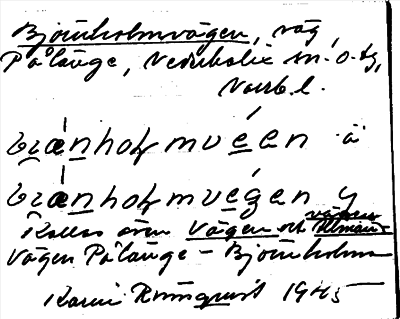 Björnholmvägen, väg,
Pålänge, Nederkalix sn. o. tg,
Norrb. l.
bræ̀nhoḷmvéen ä
bræ̀nhoḷmvégen y
Kallas även Vägen och Allmänvägen
Vägen Pålänge – Björnholmen
Karin Runnquist 1945